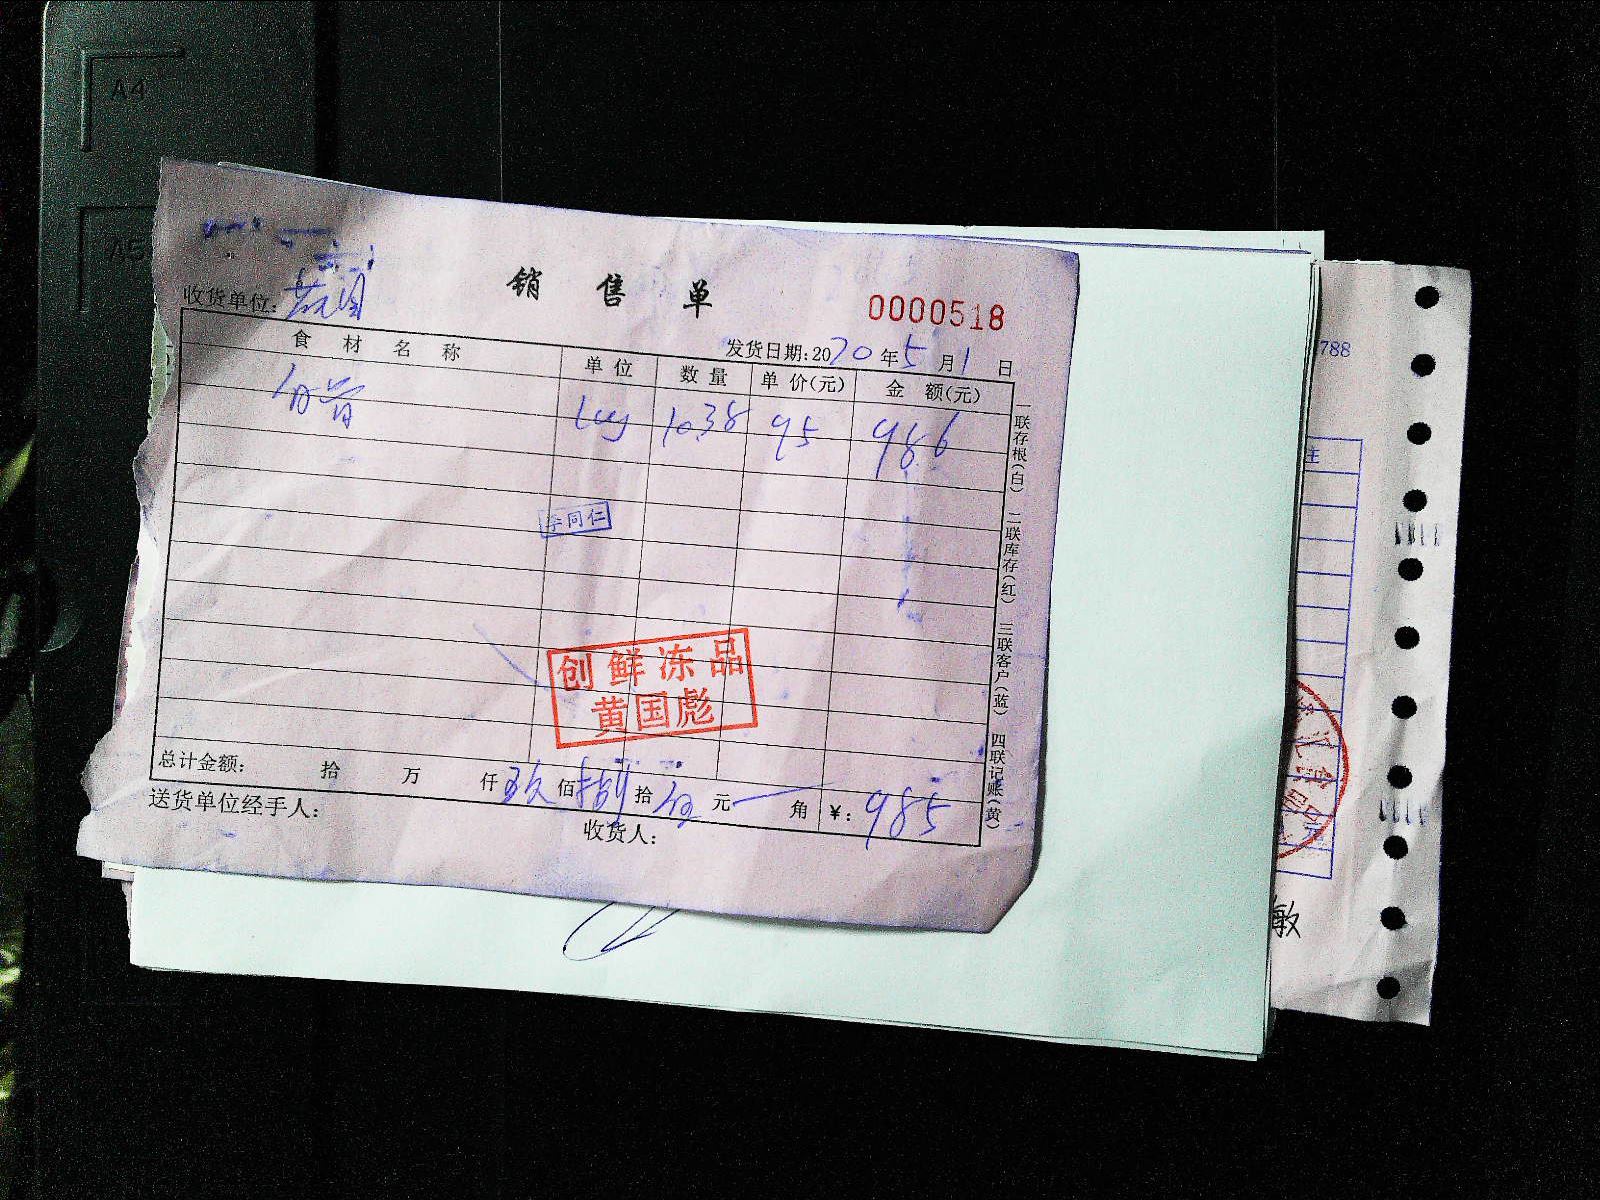 A4
A5
销售单
0000518
收货单位:
发货日期:2020年5月1日
食材名称 单位 数量 单价(元) 金额(元)
kg 10.38 95 986
李同仁
创鲜冻品
黄国彪
总计金额: 拾 万 仟玖佰捌拾伍元 角 ¥:985
送货单位经手人: 收货人:
一联存根(白) 二联库存(红) 三联客户(蓝) 四联记账(黄)
788
注
敏